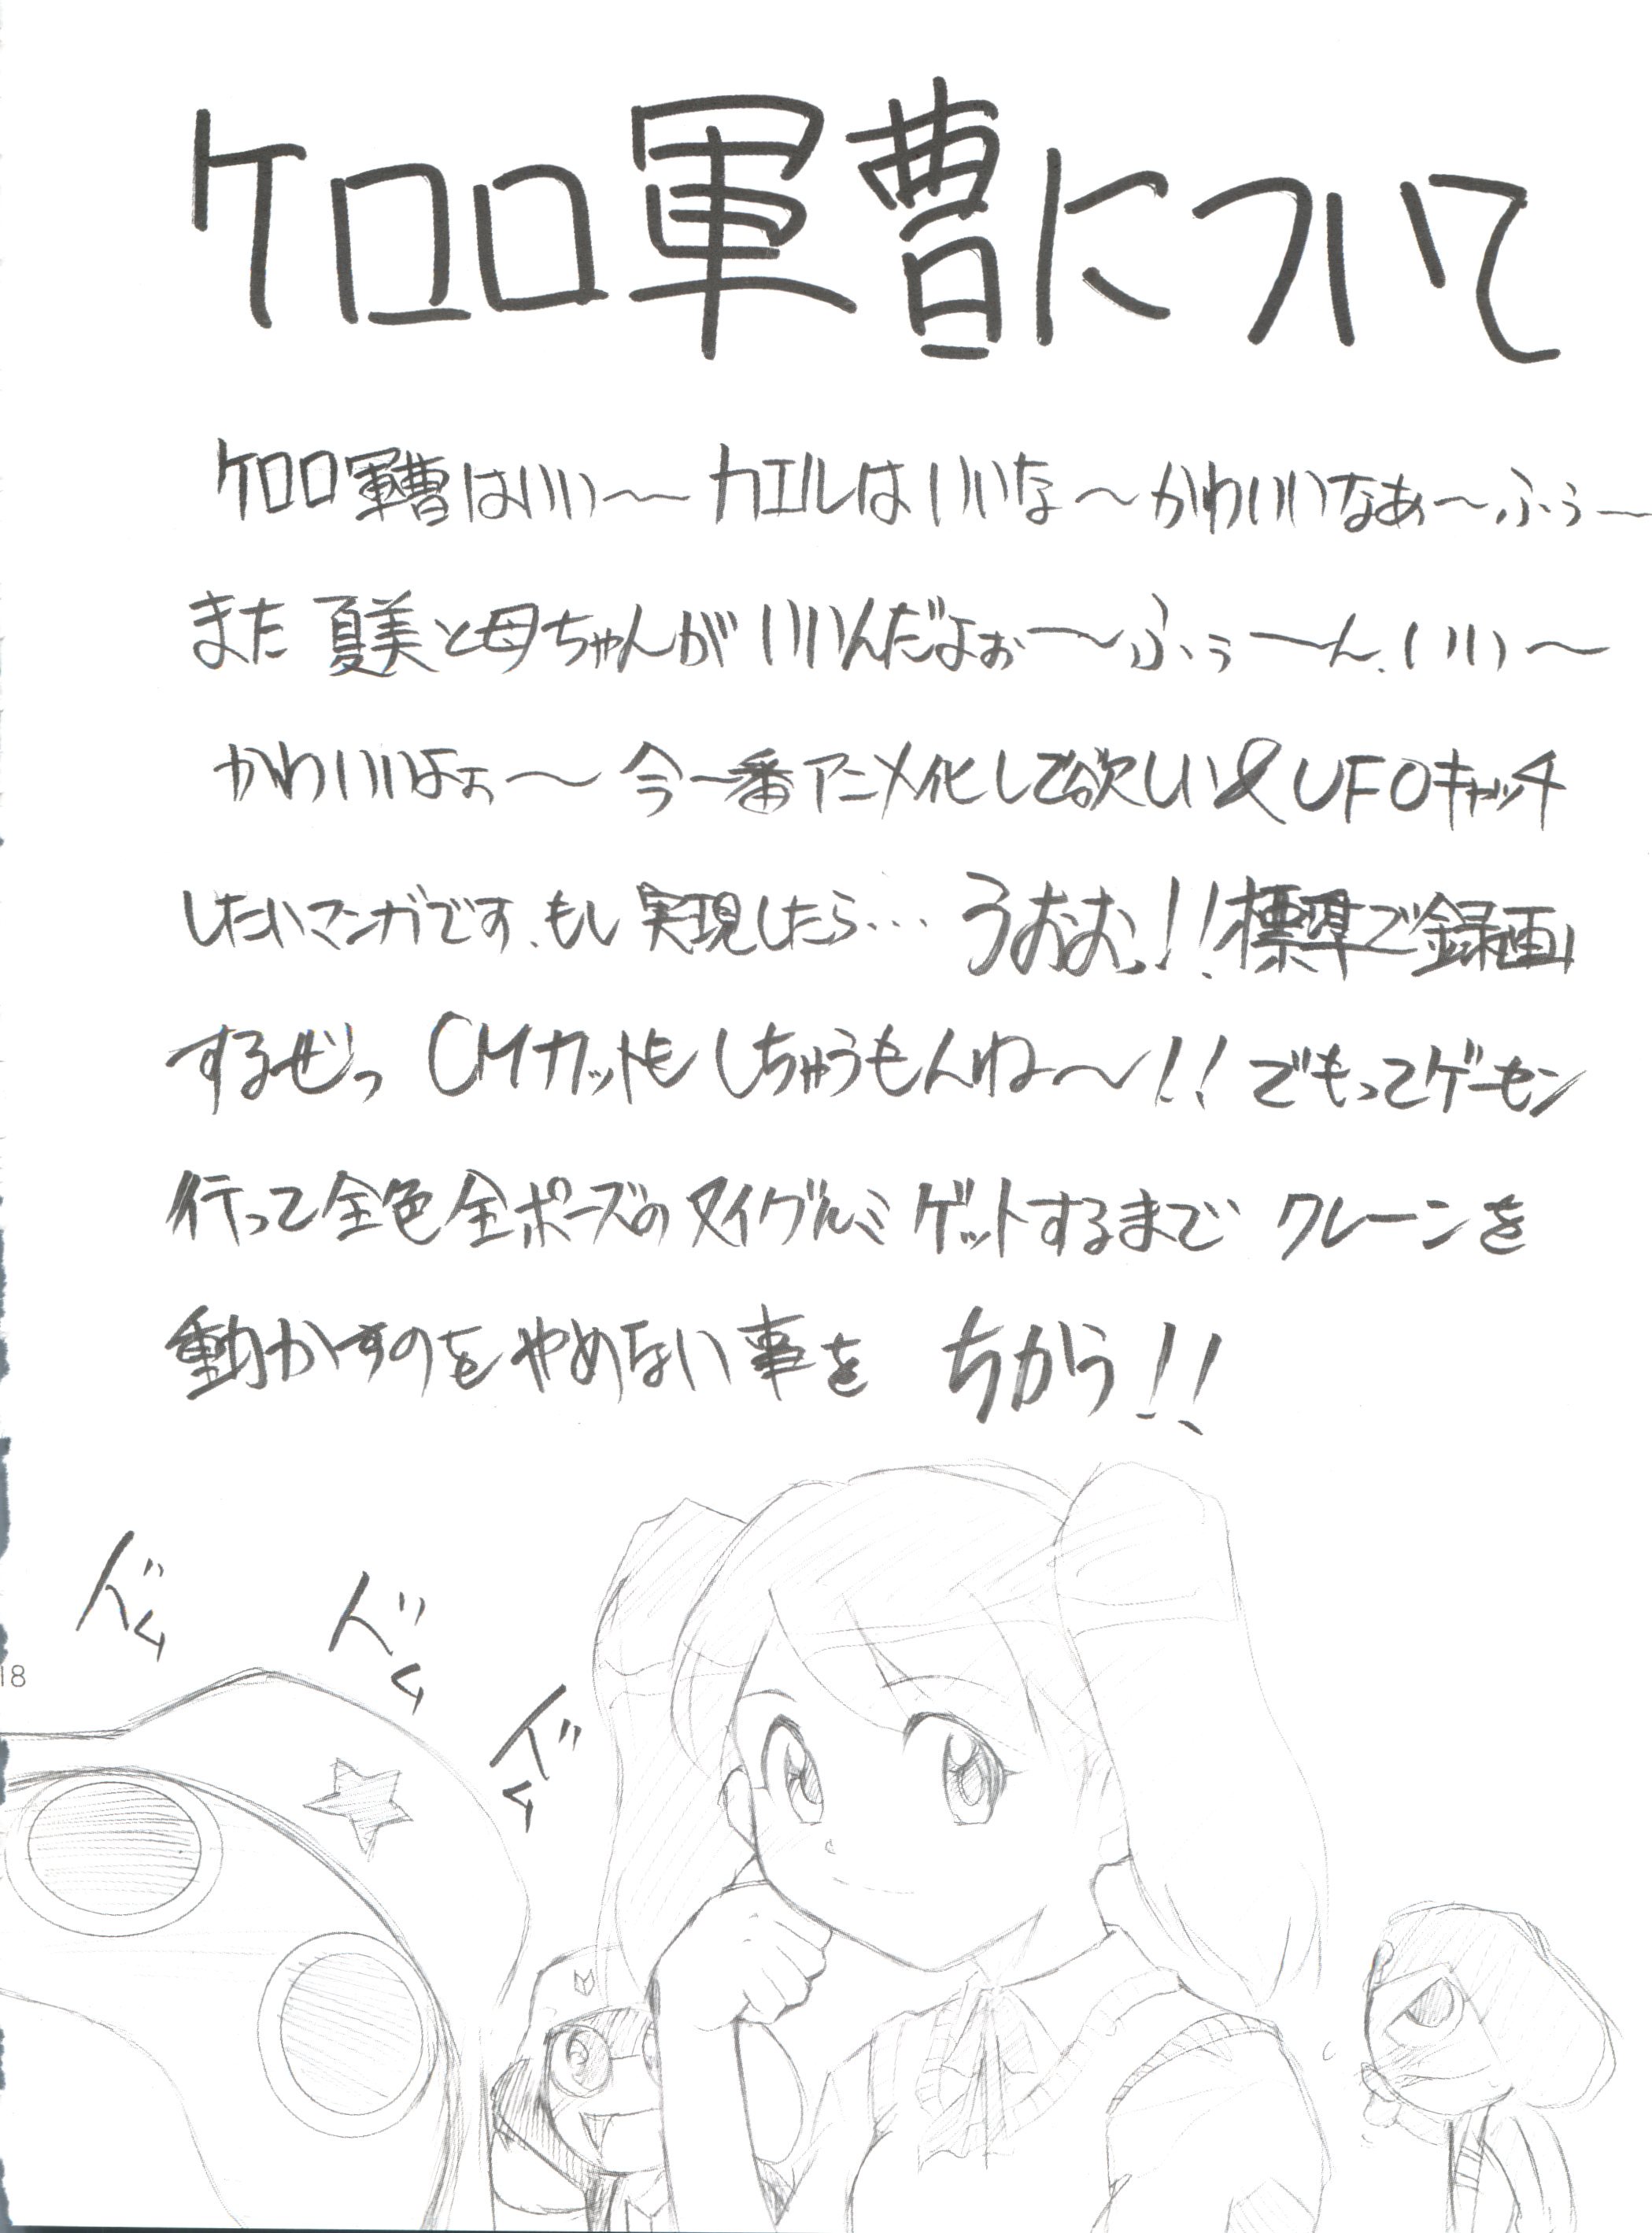 ケロロ軍曹について
ケロロ軍曹はいい〜〜カエルはいいな〜かわいいなぁ〜ふぅ〜
また夏美と母ちゃんがいいんだよぉ〜〜ふぅ〜ん、いい〜
かわいいよぉ〜今一番アニメ化して欲しい&UFOキャッチ
したいマンガです、もし実現したら…うおおっ!!標準で録画
するぜっ CMカットもしちゃうもんね〜!!でもってゲーセン
行って全色全ポーズのヌイグルミゲットするまでクレーンを
動かすのをやめない事をちかう!!
ドム
ドム
ドム
18